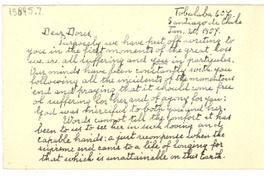 15895.2
Tobalaba 652
Santiago de Chile
Jan. 20th 1957.
Dear Doris
Purposely we have put off writing to
you in the first moments of the great loss
we are all suffering and you in particular.
Our minds have been constantly with you
following all the incidents of the momentous
end and praying that it should come free
of suffering for her and of agony for you:
God was merciful to both you and her.
Words cannot tell the comfort it has
been to us to see her in such loving and
capable hands: a just recompense when the
supreme end came to a life of longing for
that which is unattainable on this Earth.